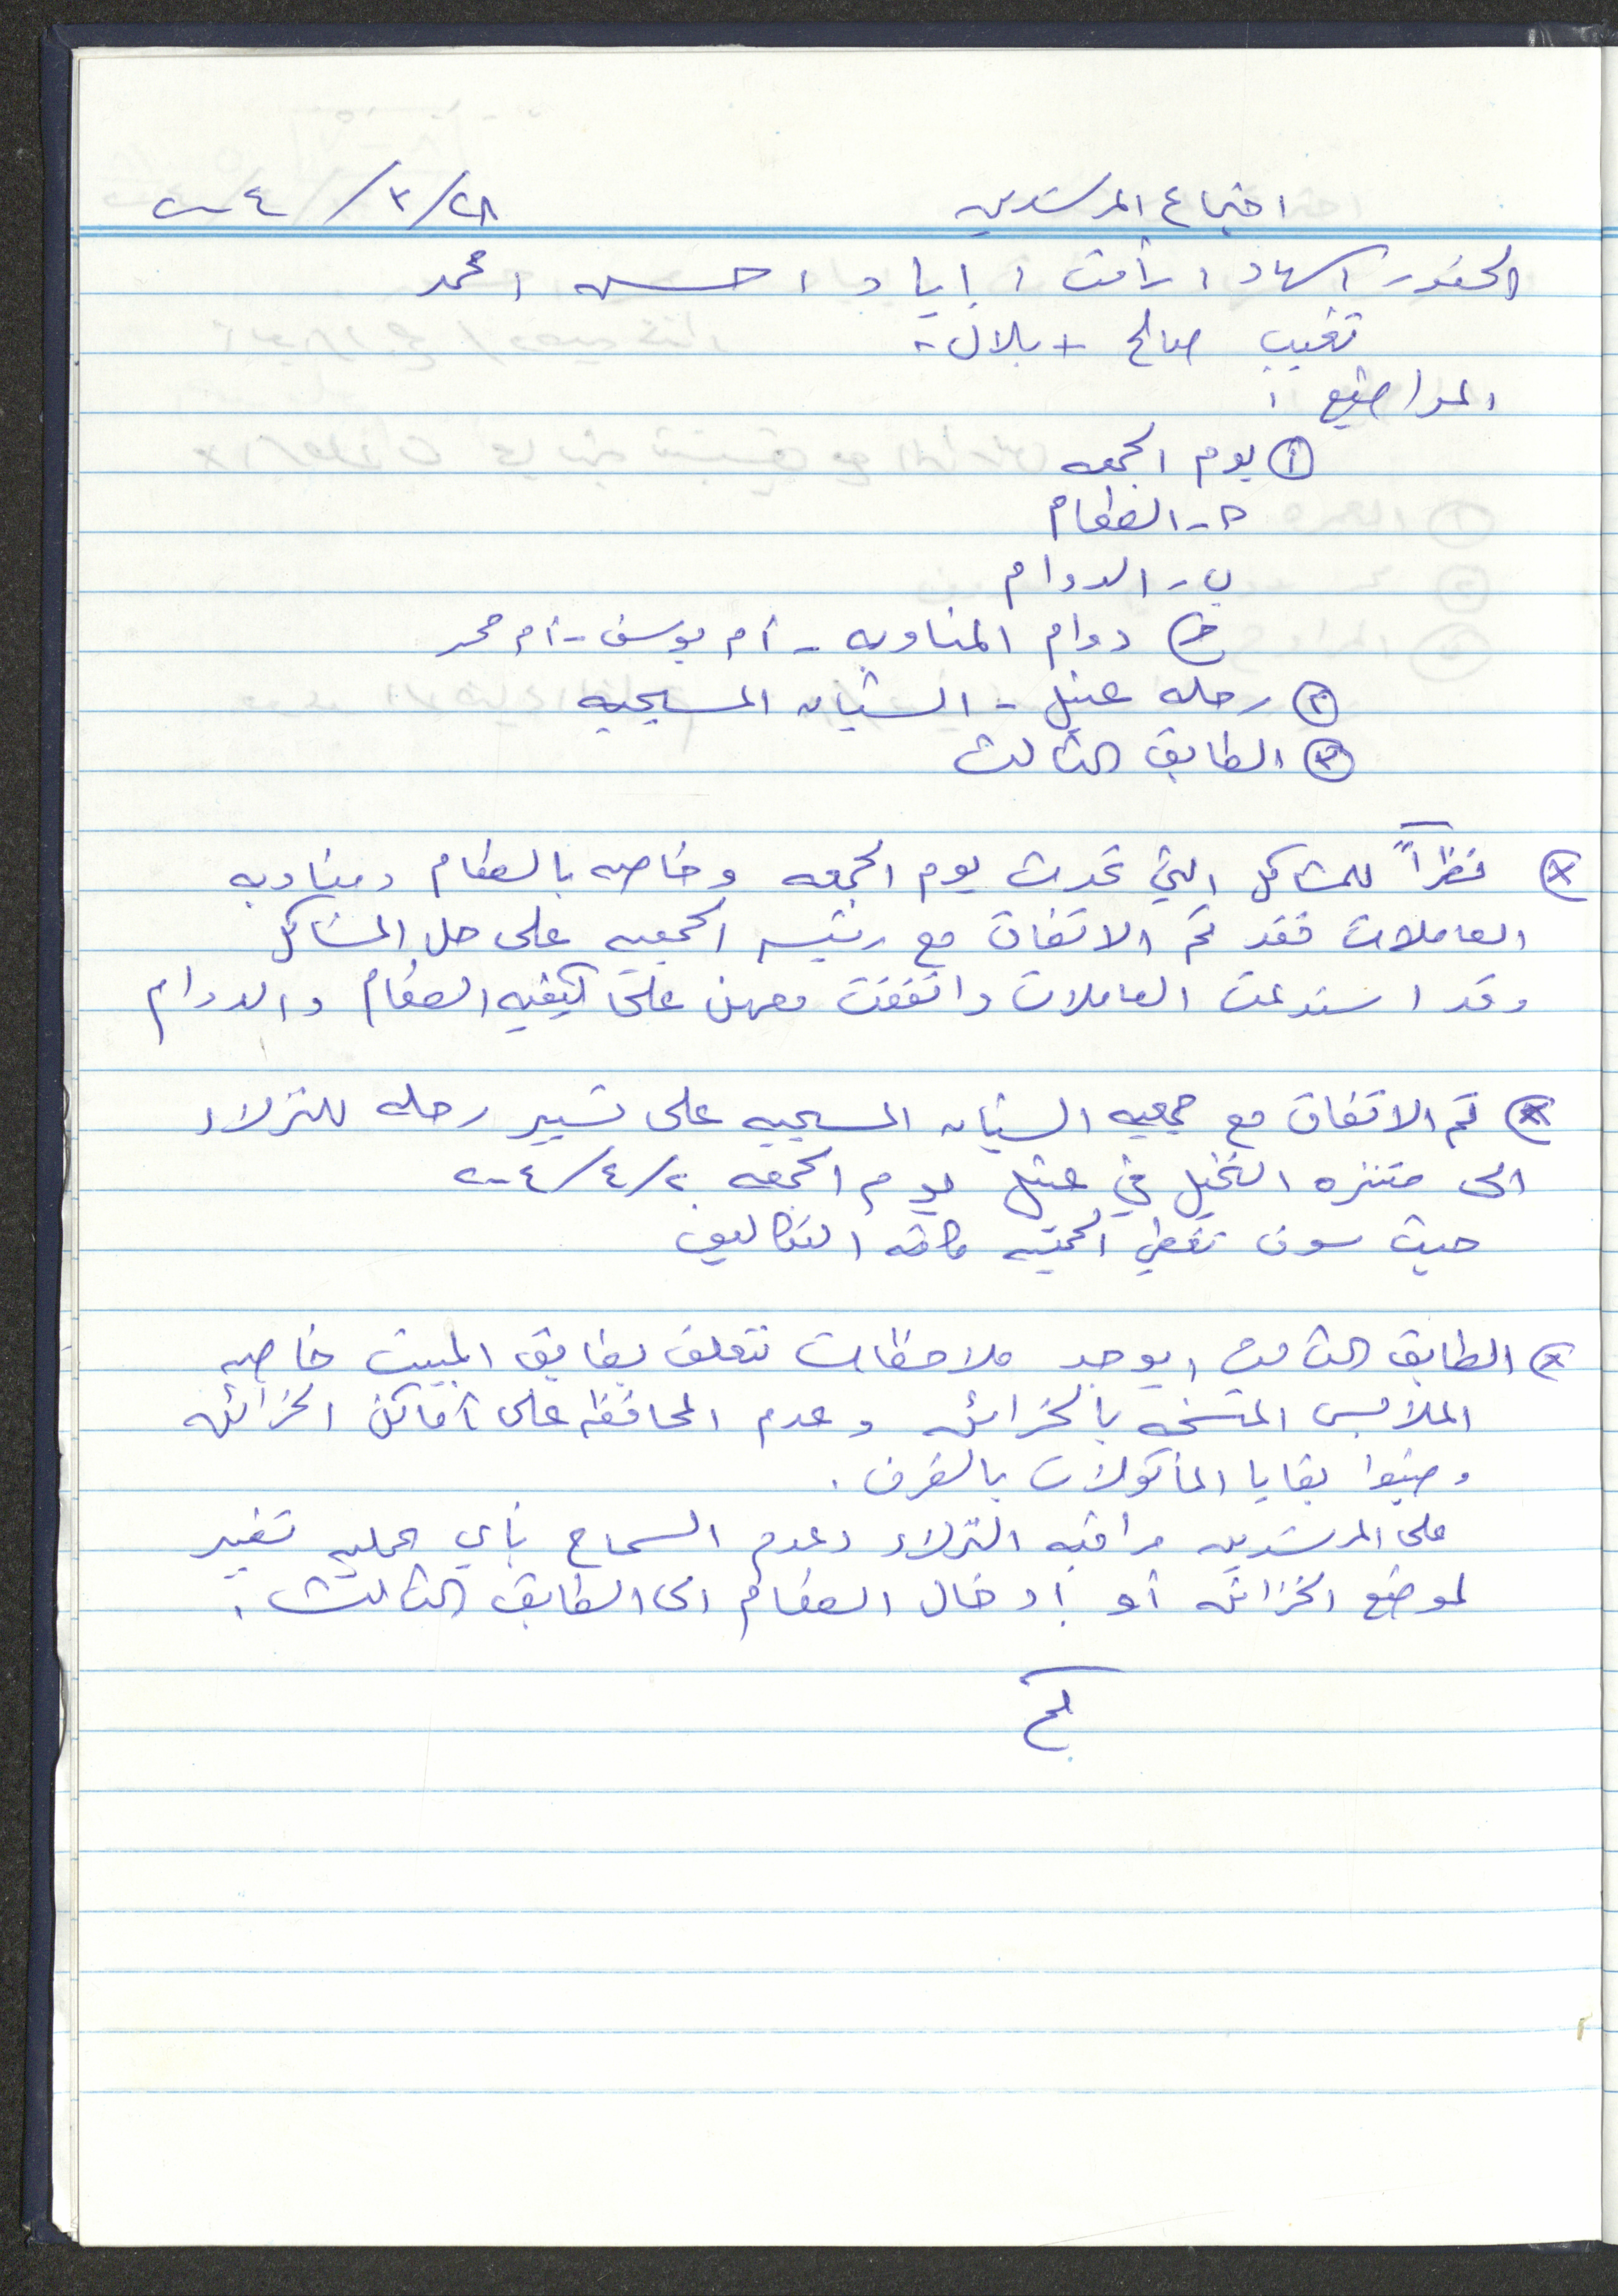 اجتماع المرشدين ٢٨/٣/٢٠٠٤
الحضور سهاد، رأفت، إياد، حسن، محمد
تغيب صالح + بلال -
المواضيع:
١ يوم الجمعه
أ- الطعام
ب- الدوام
ج دوام المناوبه - أم يوسف - أم محمد
٢ رحله عتيل - الشبان المسيحيه
٣ الطابق الثالث
* نظراً للمشاكل التي تحدث يوم الجمعه وخاصه بالطعام ومناوبه
العاملات فقد تم الاتفاق مع رئيسه الجمعيه على حل المشاكل
وقد استدعت العاملات واتفقت معهن على كيفيه الطعام والدوام
* تم الاتفاق مع جمعيه الشبان المسيحيه على تسيير رحله للنزلاء
الى متنزه النخيل في عتيل يوم الجمعه ٢/٤/٢٠٠٤
حيث سوف تغطي الجمعيه كافه التكاليف
* الطابق الثالث، يوجد ملاحظات تتعلق بطابق المبيت خاصه
الملابس المتسخه بالخزائن وعدم المحافظه على أماكن الخزائن
بقايا المأكولات بالغرف.
على المرشدين مراقبه النزلاء وعدم السماح بأي عمليه تغيير
لموضع الخزائن أو إدخال الطعام الى الطابق الثالث.